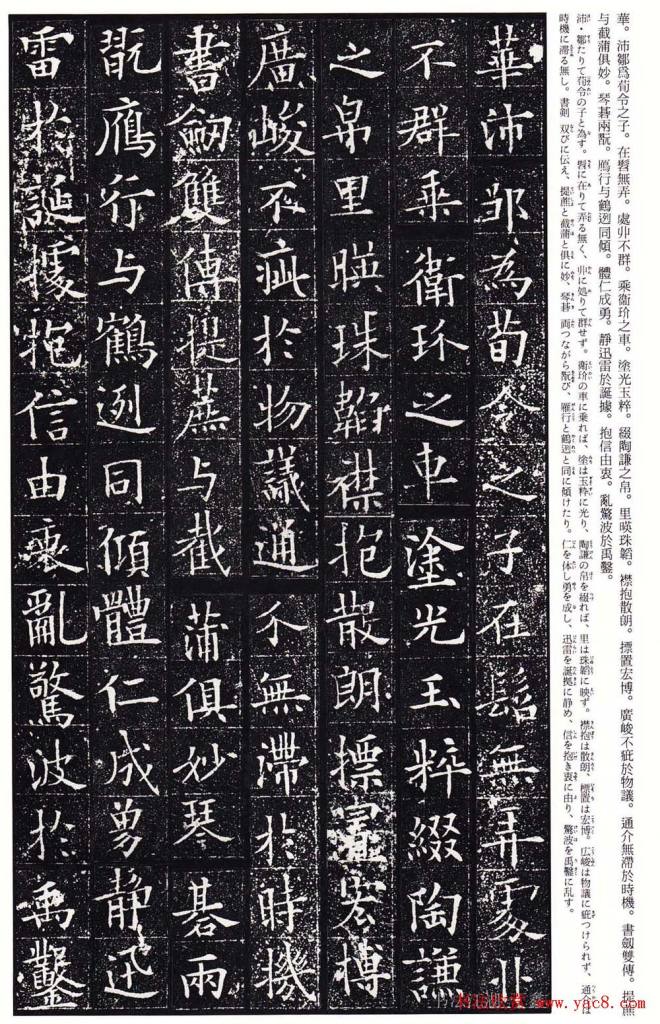 華。沛鄒爲荀令之子。在髫無弄。處丱不群。乘衞玠之車。塗光玉粹。綴陶謙之帛。里暎珠韜。襟抱散朗。摽置宏博。廣峻不疵於物議。通介無滯於時機。書劔雙傳。提
与截蒲俱妙。琴碁兩翫。鴈行与鶴迾同傾。體仁成勇。靜迅雷於誕據。抱信由衷。亂驚波於禹鑿。
沛・鄒たりて荀令の子と為す。髫に在りて弄る無く、丱に処りて群せず。衛玠の車に乗れば、塗は玉粋に光り、陶謙の帛を綴れば、里は珠韜に映ず。襟抱は散朗、標置は宏博。広峻は物議に疵つけられず、通介は
時機に滞る無し。書剣 双びに伝え、提
と截蒲と俱に妙、琴碁 両つながら翫び、雁行と鶴迾と同に傾けたり。仁を体し勇を成し、迅雷を誕拠に静め、信を抱き衷に由り、驚波を禹鑿に乱す。
華沛邹為荀令之子在髫無弄處丱
不群乗衛玠之車塗光玉粹綴陶謙
之帛里暎珠韜襟抱散朗摽置宏博
廣峻不疵於物議通介無滯於時機
書劔雙傳提与截蒲俱妙琴碁兩
翫鴈行与鶴迾同傾體仁成勇静迅
雷於誕據抱信由衷亂驚波於禹鑿
www.yac8.com